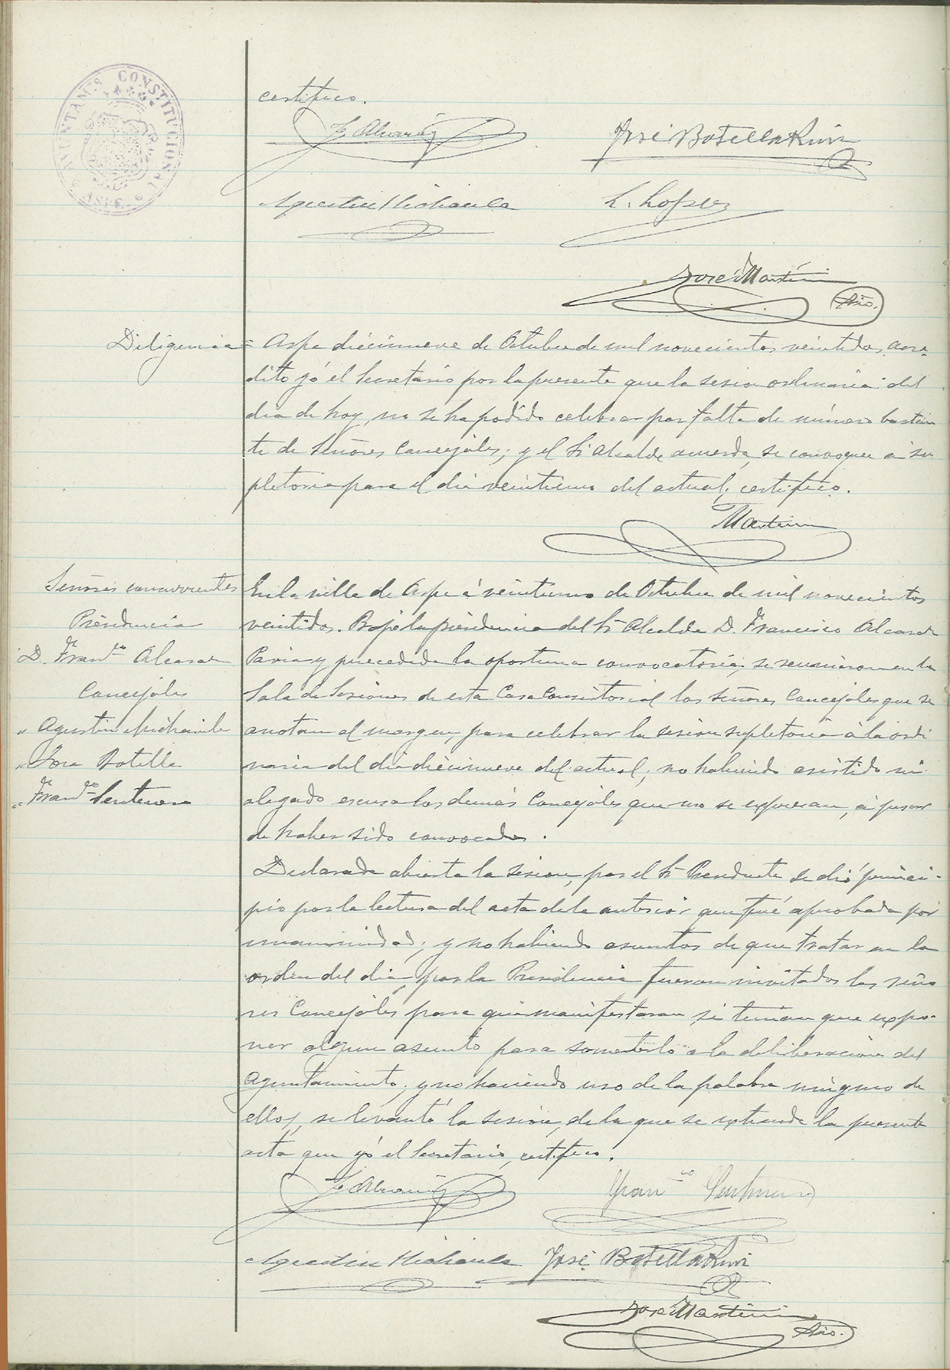 AYUNTAM.º CONSTITUCIONAL
ASPE
certifico.
F. Alcaraz
José Botella Ruiz
Agustin Michavila
L. Lopez
José Martini
Srio.
Diligencia = Aspe diecinueve de Octubre de mil novecientos veintidos, acre-
dito yó el Secretario por la presente que la sesion ordinaria del
dia de hoy, no se ha podido celebrar por falta de número bastan
te de Señores Concejales; y el Sr Alcalde acuerda, se convoque a su
pletoria para el dia veintiuno del actual; certifico.
Martini
Señores concurrentes
Presidencia
D. Franco Alcaraz
Concejales
" Agustin Michavila
" Jose Botella
" Franco
En la villa de Aspe á veintiuno de Octubre de mil novecientos
veintidos. Bajo la presidencia del Sr Alcalde D. Francisco Alcaraz
Pavia y precedida la oportuna convocatoria, se reunieron en la
Sala de Sesiones de esta Casa Consistorial los señores Concejales que se
anotan al margen, para celebrar la sesion supletoria á la ordi
naria del dia diecinueve del actual; no habiendo asistido ni
alegado escusa los demás Concejales que no se expresan, á pesar
de haber sido convocados.
Declarada abierta la sesion, por el Sr Presidente se dió princi-
pio por la lectura del acta de la anterior que fué aprobada por
unanimidad; y no habiendo asuntos de que tratar en la
orden del dia, por la Presidencia fueron invitados los seño
res Concejales para que manifestaran si tenian que expo-
ner algun asunto para someterlo a la deliberación del
Ayuntamiento; y no haciendo uso de la palabra ninguno de
ellos, se levantó la sesion, de la que se extiende la presente
acta que yó el Secretario, certifico.
F. Alcaraz
Franco
Agustin Michavila
José Botella Ruiz
José Martini
Srio.